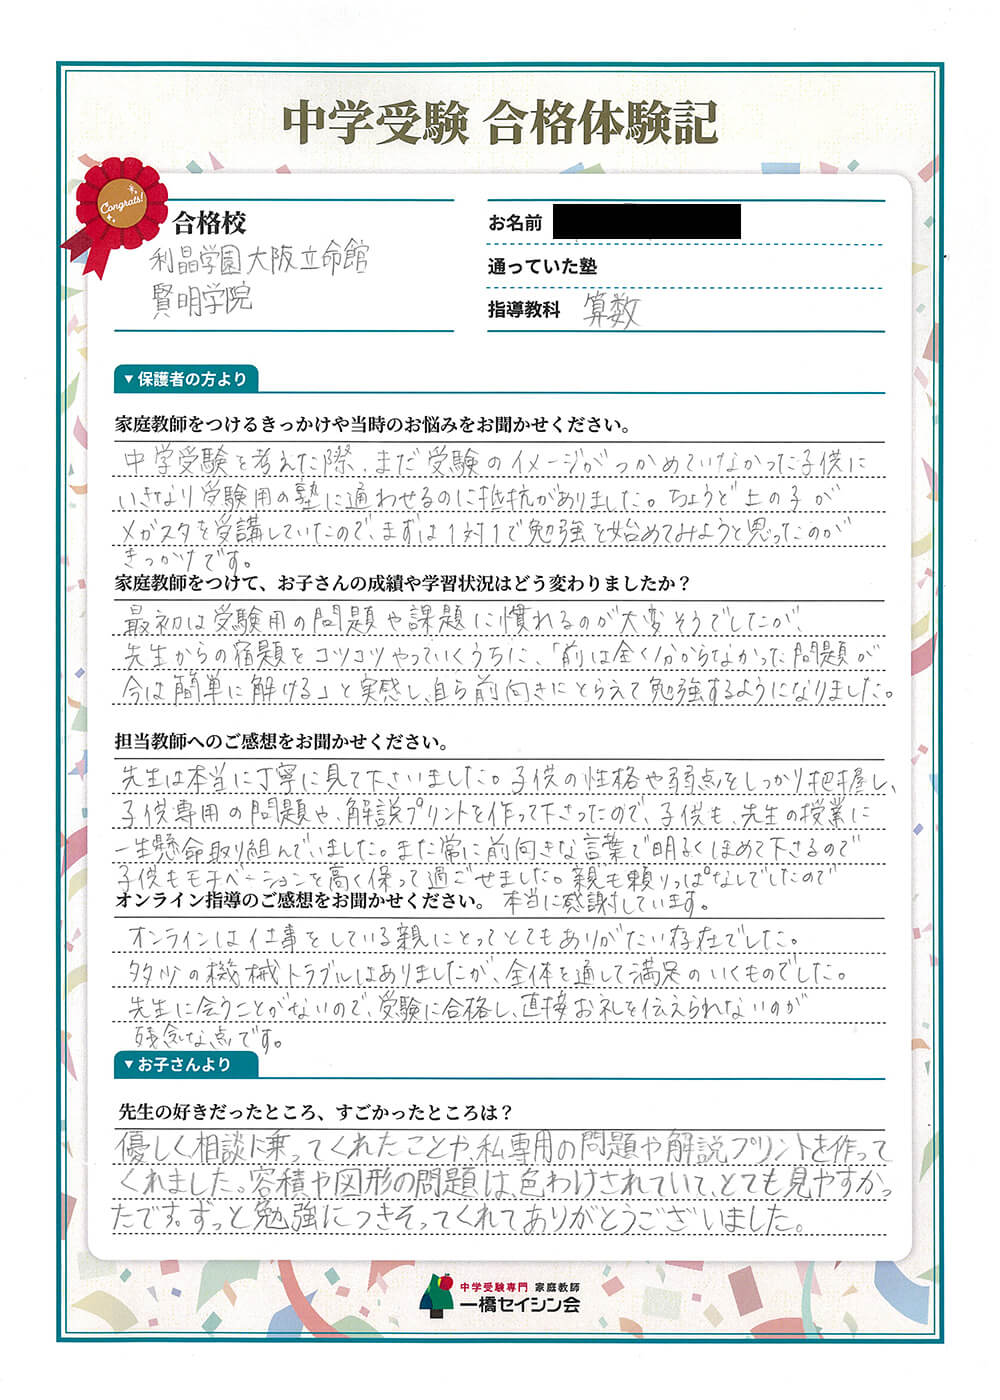 中学受験 合格体験記
Congrats!
合格校
利晶学園大阪立命館
賢明学院
お名前
通っていた塾
指導教科 算数
▼保護者の方より
家庭教師をつけるきっかけや当時のお悩みをお聞かせください。
中学受験を考えた際、まだ受験のイメージがつかめていなかった子供に
いきなり受験用の塾に通わせるのに抵抗がありました。ちょうど上の子が
メガスタを受講していたので、まずは1対1で勉強を始めてみようと思ったのが
きっかけです。
家庭教師をつけて、お子さんの成績や学習状況はどう変わりましたか？
最初は受験用の問題や課題に慣れるのが大変そうでしたが、
先生からの宿題をコツコツやっていくうちに、「前は全く分からなかった問題が
今は簡単に解ける」と実感し、自ら前向きにとらえて勉強するようになりました。
担当教師へのご感想をお聞かせください。
先生は本当に丁寧に見て下さいました。子供の性格や弱点をしっかり把握し、
子供専用の問題や、解説プリントを作って下さったので、子供も、先生の授業に
一生懸命取り組んでいました。また常に前向きな言葉で明るくほめて下さるので
子供もモチベーションを高く保って過ごせました。親も頼りっぱなしでしたので
オンライン指導のご感想をお聞かせください。 本当に感謝しています。
オンラインは仕事をしている親にとってとてもありがたい存在でした。
多少の機械トラブルはありましたが、全体を通して満足のいくものでした。
先生に会うことがないので、受験に合格し、直接お礼を伝えられないのが
残念な点です。
▼お子さんより
先生の好きだったところ、すごかったところは？
優しく相談に乗ってくれたことや、私専用の問題や解説プリントを作って
くれました。容積や図形の問題は、色わけされていて、とても見やすかっ
たです。ずっと勉強につきそってくれてありがとうございました。
中学受験専門 家庭教師
一橋セイシン会